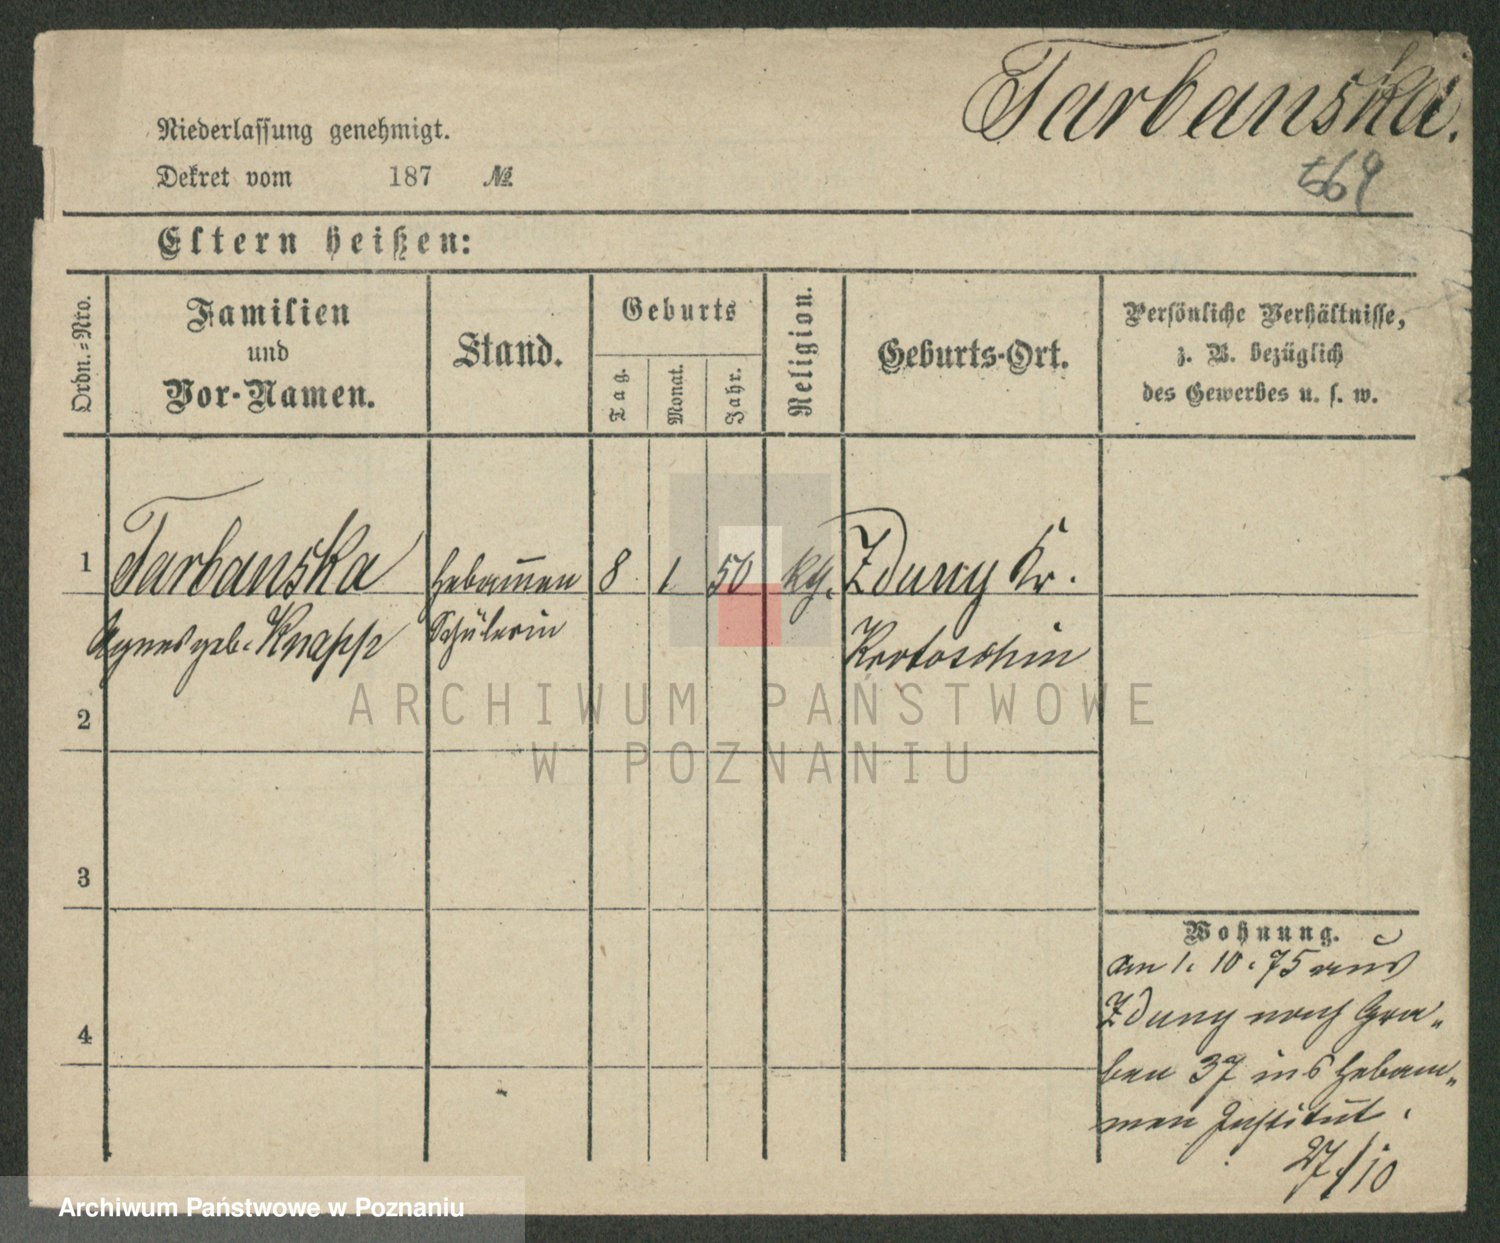 Tarbanska.
Niederlassung genehmigt.
Dekret vom 187 №
Eltern heißen:
Ordn.-Nro.
Familien
und
Vor-Namen.
Stand.
Geburts
Tag.
Monat.
Jahr.
Religion.
Geburts-Ort.
Persönliche Verhältnisse,
z. B. bezüglich
des Gewerbes u. s. w.
1 Tarbanska Hebam̅en 8 1 50 kth. Zduny Kr.
Agnes geb. Knapp Schülerin Krotoschin
2
3
4
Wohnung.
am 1. 10. 75 aus
Zduny nach Gra„
ben 37 ins Hebam„
men Institut.
27/10
ARCHIWUM PAŃSTWOWE
W POZNANIU
Archiwum Państwowe w Poznaniu